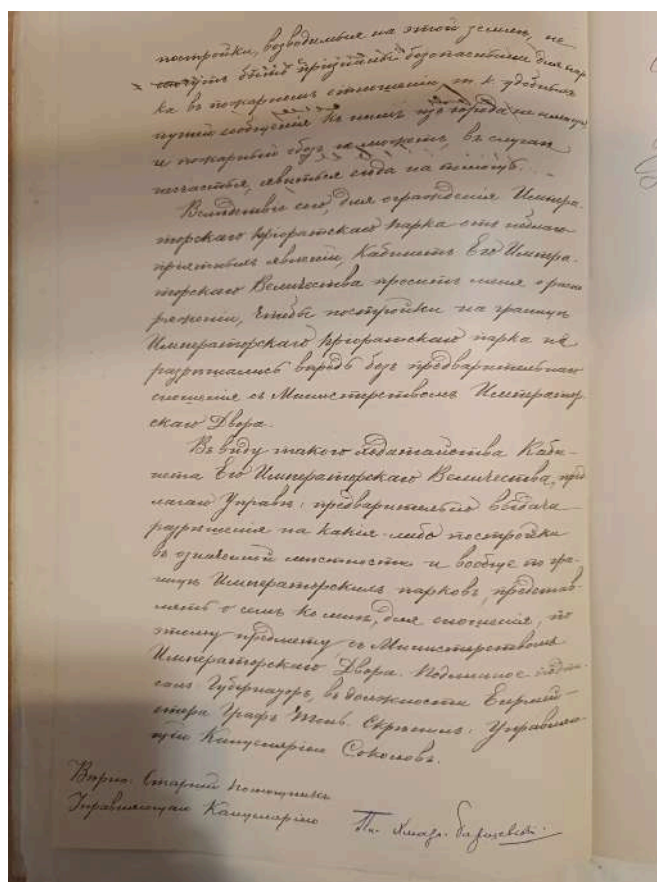 постройки, возводимыя на этой земли, не
могутъ быть признаны безопасными для пар
ка въ пожарномъ отношеніи, т. к. удобныхъ
путей сообщенія къ нимъ изъ города не имеется,
и пожарный обозъ не можетъ, въ случаѣ
несчастья, явиться сюда на помощь.
Вслѣдствіе сего, для огражденія Импера-
торскаго Пріоратскаго парка отъ неблаго-
пріятныхъ явленій, Кабинетъ Его Импера-
торскаго Величества проситъ меня о распо
ряженіи, чтобы постройки на границѣ
Императорскаго Пріоратскаго парка не
разрѣшались впредь безъ предварительнаго
сношенія съ Министерствомъ Император-
скаго Двора.
Въ виду такого ходатайства Каби-
нета Его Императорскаго Величества, пред
лагаю Управѣ, предварительно выдачи
разрѣшенія на какія-либо постройки
въ означенной мѣстности и вообще по гра-
ницѣ Императорскихъ парковъ, представ-
лять о семъ ко мнѣ, для сношенія, по
этому предмету, съ Министерствомъ
Императорскаго Двора. Подлинное подпи-
салъ Губернаторъ, въ должности Егермей-
стера Графъ скрѣпилъ: Управляю-
щій Канцеляріею Соколовъ.
Вѣрно: Старшій Помощникъ
Управляющаго Канцеляріею